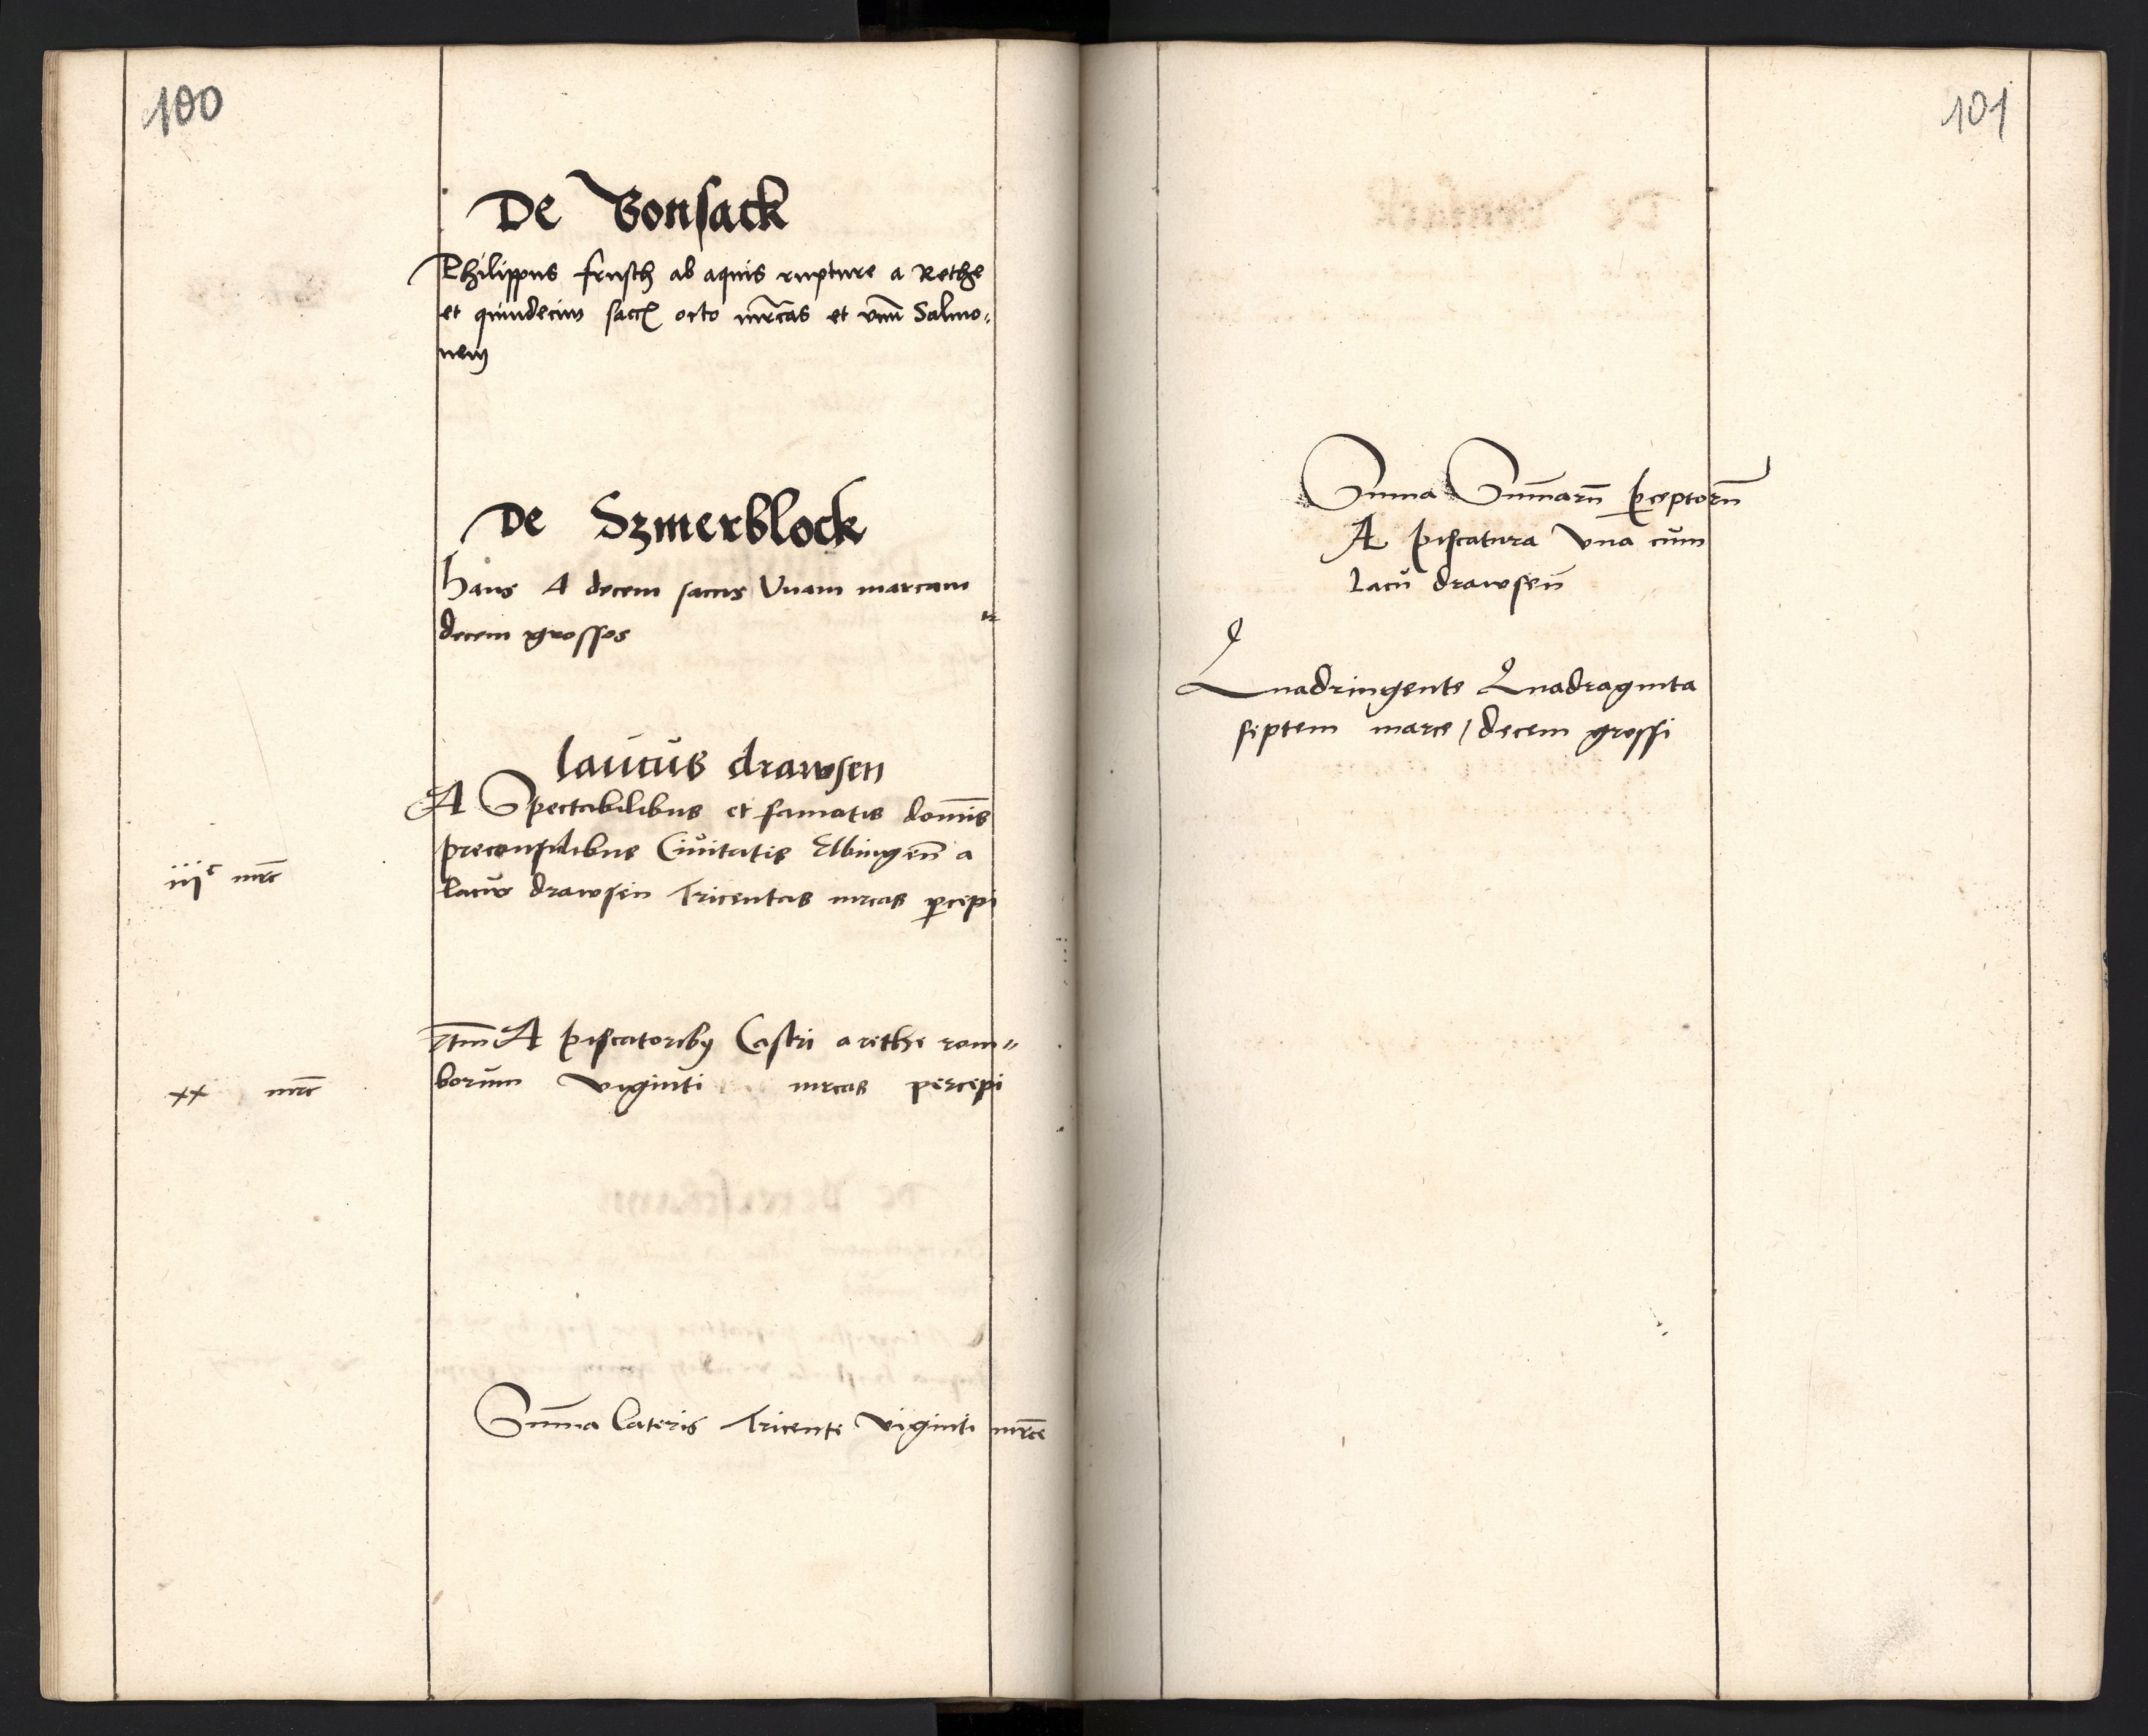 100
De Bonsack
Philippus frusch ab aquis rupture a Rethe
et quindecim sacc octo mrcas et vnū Salmo„
nem
De Szmerblock
Hans A decem saccis Vnam marcam
decem grossos
lacus drawsen
A Spectabilibus et famatis dominis
preconsulibus Ciuitatis Elbingen̄ a
iijᶜ mrc
lacu drawsen Tricentas mrcas percepi
Itm A piscatoribus Castri a rethe rom„
xx mrc
borum viginti mrcas percepi
Suma̅ Lateris Tricente viginti mrce
101
Suma Sumarū perceptorū
A piscatura vna cum
lacu drawsen̄
Quadringente Quadraginta
septem marce / decem grossi